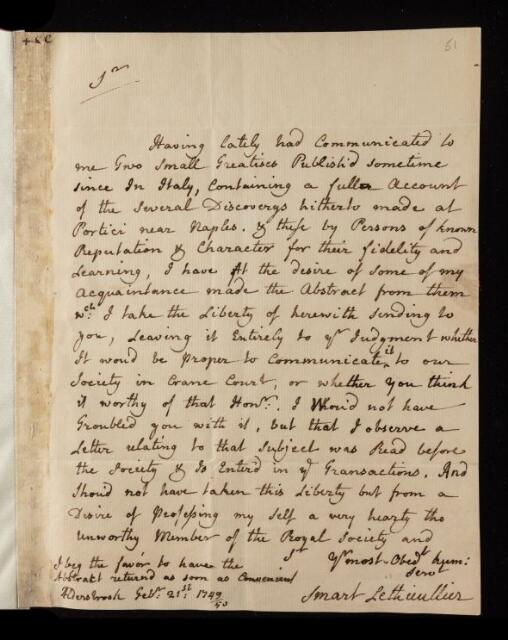 61
Sr
Having lately had Communicated to
me Two Small Treatises Publish'd sometime
since In Italy, Containing a fuller Account
of the Several Discoverys hitherto made at
Portici near Naples. & these by Persons of known
Reputation & Character for their fidelity and
Learning, I have At the desire of some of my
Acquaintance made the Abstract from them
wch: I take the Liberty of herewith sending to
you, Leaving it Entirely to yr Judgment whether
It woud be Proper to Communicate it to our
Society in Crane Court, or whether You think
it worthy of that Honr. I Shoud not have
Troubled you with it, but that I observe a
Letter relating to that Subject was Read before
the Society & Is Enterd in ye Transactions. And
Shoud not have taken this Liberty but from a
Desire of Professing my Self a very hearty tho
unworthy Member of the Royal Society and
Sr Yr most Obedt Hum:
Servt
I beg the favor to have the
Abstract returnd as soon as Convenient
Aldersbrook Febr. 21st: 1749/50
Smart Lethieullier